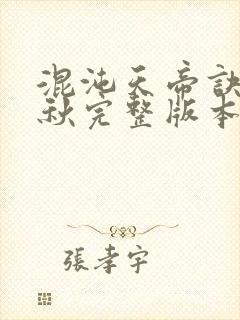 混沌天帝訣
秋完整版本
張孝宇